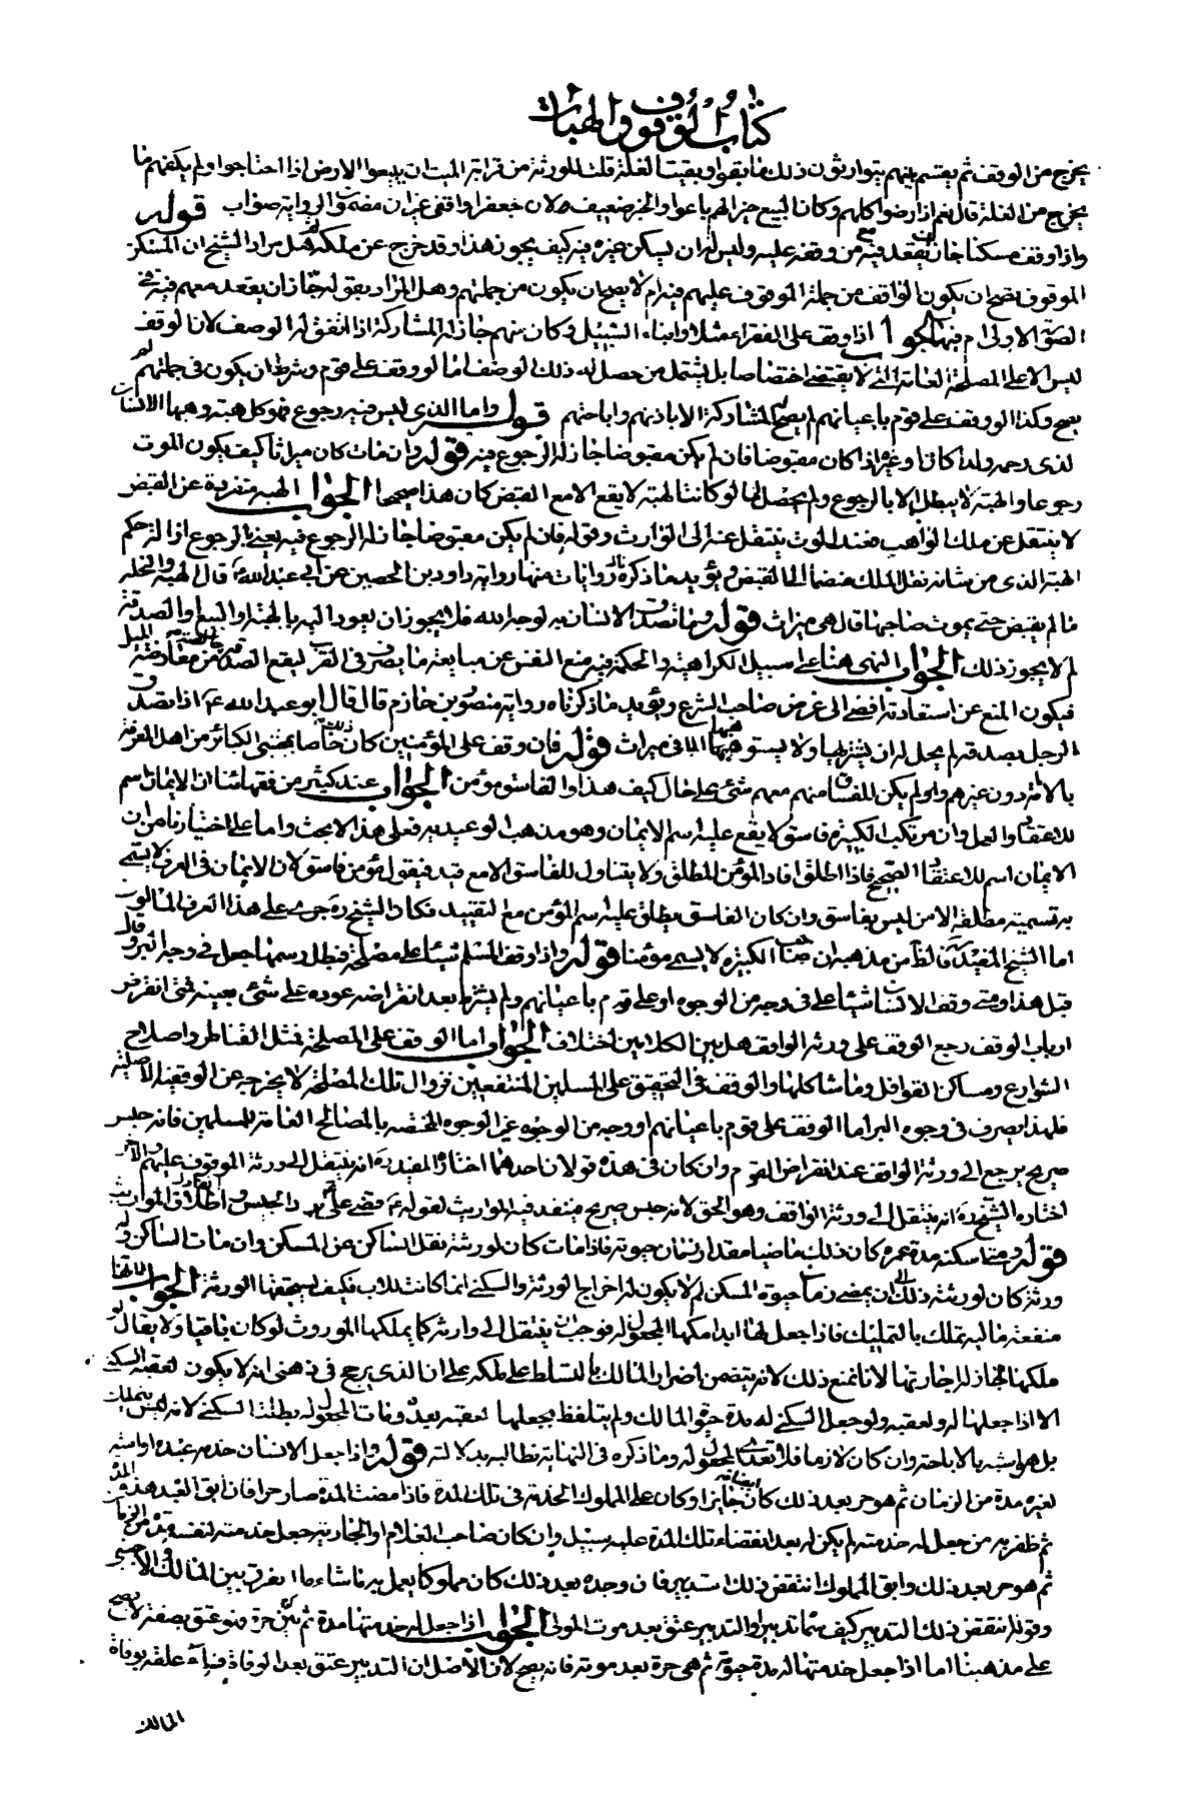 كتاب الوقوف والهبات
يخرج من الوقف ثم يقسم بينهم يتوارثون ذلك ما بقوا وبقيت الغلة قلت للورثة من قرابة الميت ان يبيعوا الارض اذا احتاجوا ولم يكفهم ما
يخرج من الغلة قال نعم اذا رضوا كلهم وكان البيع خيرا لهم باعوا والخبر ضعيف ولان جعفرا واقفى غير ان مضمون الرواية صواب قوله
واذا وقف مسكنا جاز ان يقعد فيه مع من وقفه عليه وليس له ان يسكن غيره فيه كيف يجوز هذا وقد خرج عن ملكه ثم هل مراد الشيخ ان المسكن
الموقوف يصح ان يكون الواقف من جملة الموقوف عليهم فيه ام لا يصح ان يكون من جملتهم وهل المراد بقوله جاز ان يقعد معهم فيه في
الصورة الاولى ام فيها الجواب اذا وقف على الفقراء مثلا وابناء السبيل وكان منهم جاز له المشاركة اذا اتفق له الوصف لان الوقف
ليس الا على المصلحة العامة التي لا يقتضي اختصاصا بل يشتمل من حصل له ذلك الوصف اما لو وقف على قوم وشرط ان يكون في جملتهم لم
يصح وكذا لو وقف على قوم باعيانهم لم يصح له المشاركة الا باذنهم واباحتهم قوله واما الذي ليس فيه رجوع فهو كل هبة وهبها الانسان
لذي رحمه ولدا كان او غيره اذا كان مقبوضا فان لم يكن مقبوضا جاز له الرجوع فيه قوله وان مات كان ميراثا كيف يكون الموت
رجوعا والهبة لا يبطل الا بالرجوع ولم يحصل اما لو كانت الهبة لا يقع الا مع القبض كان هذا صحيحا الجواب الهبة متعرية عن القبض
لا ينتقل عن ملك الواهب فعند الموت ينتقل عنه الى الوارث وقوله فان لم يكن مقبوضا جاز له الرجوع فيه يعني بالرجوع ازالة حكم
الهبة الذي من شانه نقل الملك منضما الى القبض ويؤيد ما ذكره روايات منها رواية داود بن الحصين عن ابي عبد الله ع قال الهبة والنحلة
ما لم يقبض حتى يموت صاحبها قال هي ميراث قوله وما تصدق الانسان به لوجه الله فلا يجوز ان يعود اليه بالهبة او البيع او الصدقة
لم لا يجوز ذلك الجواب النهي هنا على سبيل الكراهية والحكمة فيه منع النفس عن مبايعة ما يصرف في القرب ليقع الصدقة من معارضة الميل
فيكون المنع عن استعادته افضى الى غرض صاحب الشرع ويؤيد ما ذكرناه رواية منصور بن حازم قال قال ابو عبد الله ع اذا تصدق
الرجل بصدقة لم يحل له ان يشتريها ولا يستوهبها الا في ميراث قوله فان وقف على المؤمنين كان ذلك خاصا بمجتنبى الكبائر من اهل المعرفة
بالامامة دون غيرهم ولم يكن للفساق منهم معهم شيء على حال كيف هذا والفاسق مؤمن الجواب عند كثير من فقهائنا ان الايمان اسم
للاعتقاد والعمل وان مرتكب الكبيرة فاسق لا يقع عليه اسم الايمان وهو مذهب الوعيدية فعلى هذا لا بحث واما على اختيارنا من ان
الايمان اسم للاعتقاد الصحيح فاذا اطلق افاد المؤمن المطلق ولا يتناول للفاسق الا مع قيد فيقول مؤمن فاسق لان الايمان في العرف لا يسمى
به تسمية مطلقة الا من ليس بفاسق وان كان الفاسق يطلق عليه اسم المؤمن مع التقييد فكان الشيخ ره جرى على هذا العرف المالوف
اما الشيخ المفيد ره فالظ من مذهبه ان صاحب الكبيرة لا يسمى مؤمنا قوله واذا وقف المسلم شيئا على مصلحة فبطل رسمها جعل في وجه البر وقال
قبل هذا ومتى وقف الانسان شيئا على في وجه من الوجوه او على قوم باعيانهم ولم يشرط بعد انقراضه عوده على شيء بعينه فمتى انقرض
ارباب الوقف رجع الوقف على ورثة الواقف هل بين الكلامين اختلاف الجواب اما الوقف على المصلحة فمثل القناطر واصلاح
الشوارع ومساكن القوافل وما شاكلها والوقف في التحقيق على المسلمين المنتفعين فزوال تلك المصلحة لا يخرجه عن الوقفية الاصلية
فلهذا يصرف في وجوه البر اما الوقف على قوم باعيانهم او وجه من الوجوه غير الوجوه المختصة بالمصالح العامة للمسلمين فانه حبس
صريح يرجع الى ورثة الواقف عند انقراض القوم وان كان في هذه قولان احدهما اختاره المفيد ره انه ينتقل الى ورثة الموقوف عليهم والاخر
اختاره الشيخ ره انه ينتقل الى ورثة الواقف وهو الحق لانه حبس صريح فينفذ فيه المواريث لقوله ع قضى على ع برد الحبس وانفاذ المواريث
قوله ومتى اسكنه مدة عمره كان ذلك ماضيا مقدار زمان حيوته فاذا مات كان لورثته نقل الساكن عن المسكن وان مات الساكن وله
ورثة كان لورثته ذلك الى ان يمضى زمان حيوة المسكن لم لا يكون له اخراج الورثة والسكنى انما كانت للاب فكيف يستحقها الورثة الجواب انها
منفعة مالية تملك بالتمليك فاذا جعل لها ابدا ملكها المجعول له فوجب ان ينتقل الى وارثه كما يملكها الموروث لو كان باقيا ولا يقال لو
ملكها لجاز له اجارتها لانا نمنع ذلك لانه يتضمن اضرار المالك بالتسلط على ملكه على ان الذي يرجح في ذهني انه لا يكون لعقبه السكنى
الا اذا جعلها له ولعقبه ولو جعل السكنى له مدة حيوة المالك ولم يتلفظ بجعلها لعقبه بعد وفات المجعول له بطلت السكنى لانه ليس بتمليك
بل هو اشبه بالاباحة وان كان لازما فلا يتعدى المجعول له وما ذكره في النهاية نطالبه بدلالته قوله واذا جعل الانسان خدمة عبده او امته
لغيره مدة من الزمان ثم هو حر بعد ذلك كان ايضا جايزا وكان على المملوك الخدمة في تلك المدة فاذا مضت المدة صار حرا فان ابق العبد هذه المدة
ثم ظفر به من جعل له خدمته لم يكن له بعد انقضاء تلك المدة عليه سبيل وان كان صاحب الغلام او الجارية جعل خدمته لنفسه مدة من الزمان
ثم هو حر بعد ذلك وابق المملوك انتقض ذلك التدبير فان وجده بعد ذلك كان مملوكا يعمل به ما شاء ما الفرق بين المالك والاجنبي
وقوله انتقض ذلك التدبير كيف سماه تدبيرا والتدبير عتق بعد موت المولى الجواب اذا جعل له خدمتها مدة ثم هي حرة فهو عتق بصفة لا يصح
على مذهبنا اما اذا جعل خدمتها له مدة حيوته ثم هي حرة بعد موته فانه يصح لان الاصل ان التدبير عتق بعد الوفاة علقه بوفاة
المالك